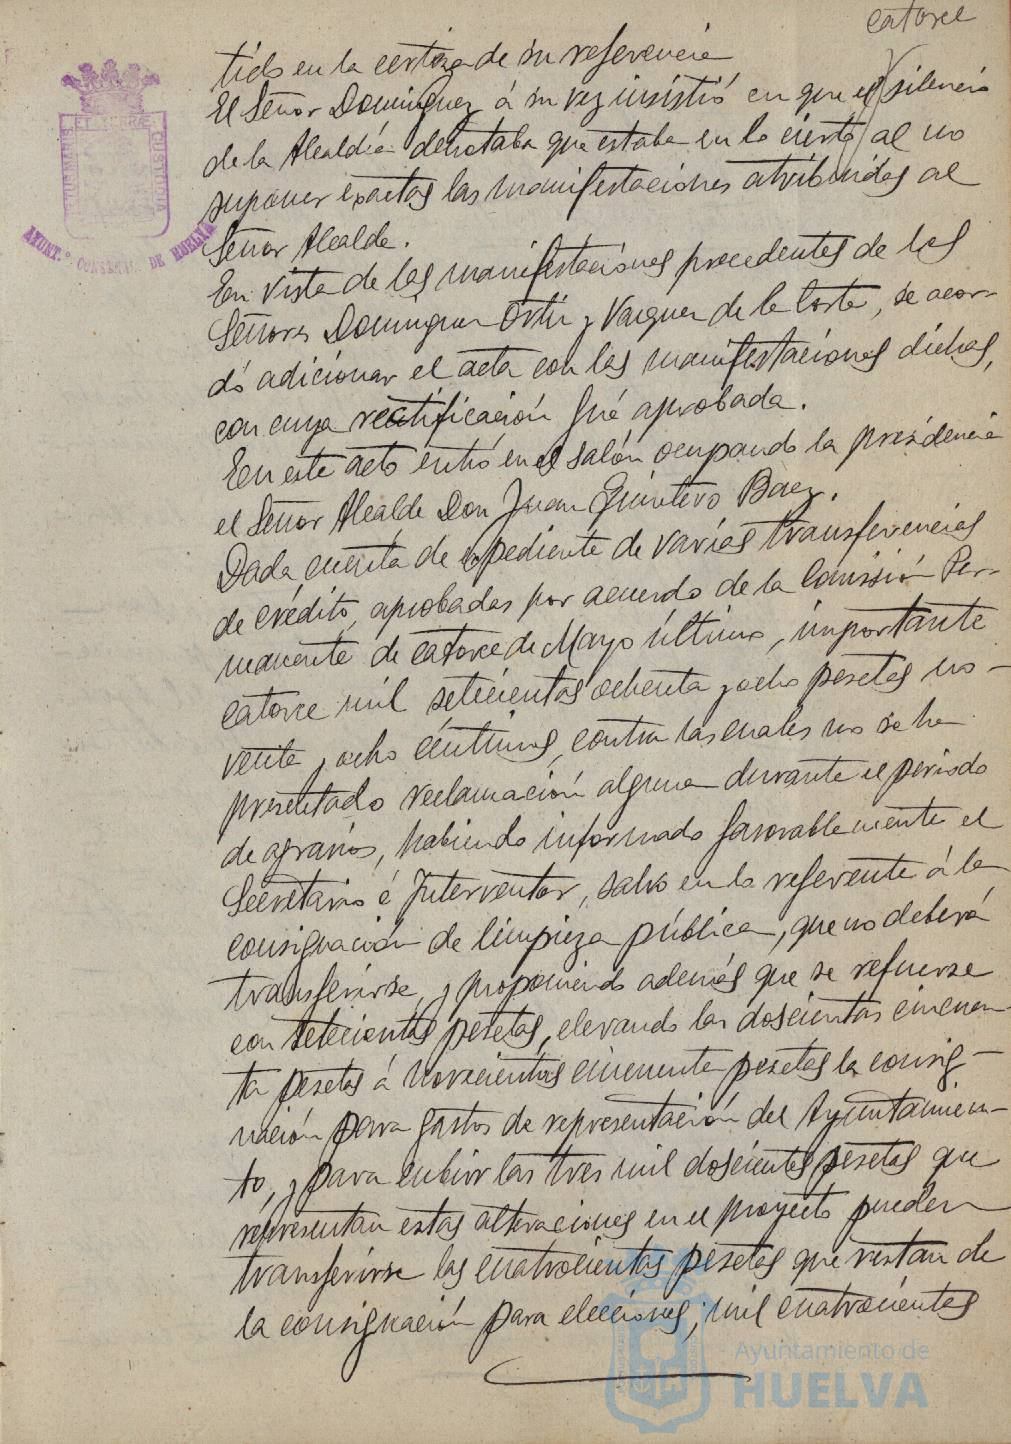 catorce
tido en la certeza de su referencia
El Señor Dominguez á su vez insistió en que el silencio
de la Alcaldía denotaba que estaba en lo cierto al no
suponer exactas las manifestaciones atribuidas al
Señor Alcalde.
En vista de las manifestaciones precedentes de los
Señores Dominguez Ortiz y Vazquez de la Corte, se acor-
dó adicionar el acta con las manifestaciones dichas,
con cuya rectificación fué aprobada.
En este acto entró en el salón ocupando la presidencia
el Señor Alcalde Don Juan Quintero Baez.
Dada cuenta de expediente de varias transferencias
de crédito, aprobadas por acuerdo de la Comisión Per-
manente de catorce de Mayo último, importante
catorce mil setecientas ochenta y ocho pesetas no-
venta y ocho céntimos, contra las cuales no se ha
presentado reclamación alguna durante el periodo
de agravios, habiendo informado favorablemente el
Secretario é Interventor, salvo en lo referente á la
consignación de limpieza pública, que no deberá
transferirse, y proponiendo además que se refuerse
con setecientas pesetas, elevando las doscientas cincuen-
ta pesetas á novecientas cincuenta pesetas la consig-
nación para gastos de representación del Ayuntamien-
to, y para cubrir las tres mil doscientas pesetas que
representan estas alteraciones en el proyecto pueden
transferirse las cuatrocientas pesetas que restan de
la consignación para elecciones; mil cuatrocientas
AYUNT.º CONSTIT. DE HUELVA
Ayuntamiento de
HUELVA